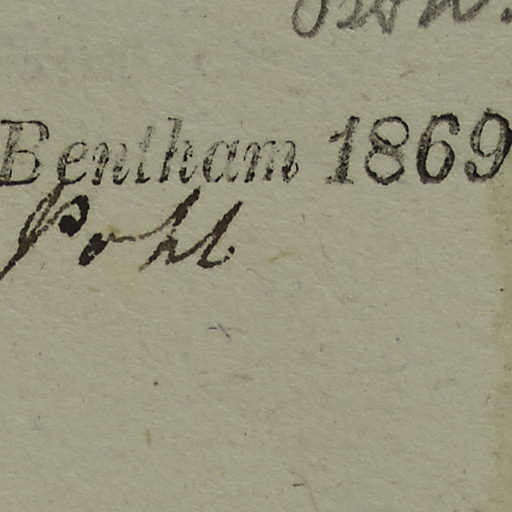 Bentham 1869
Pohl